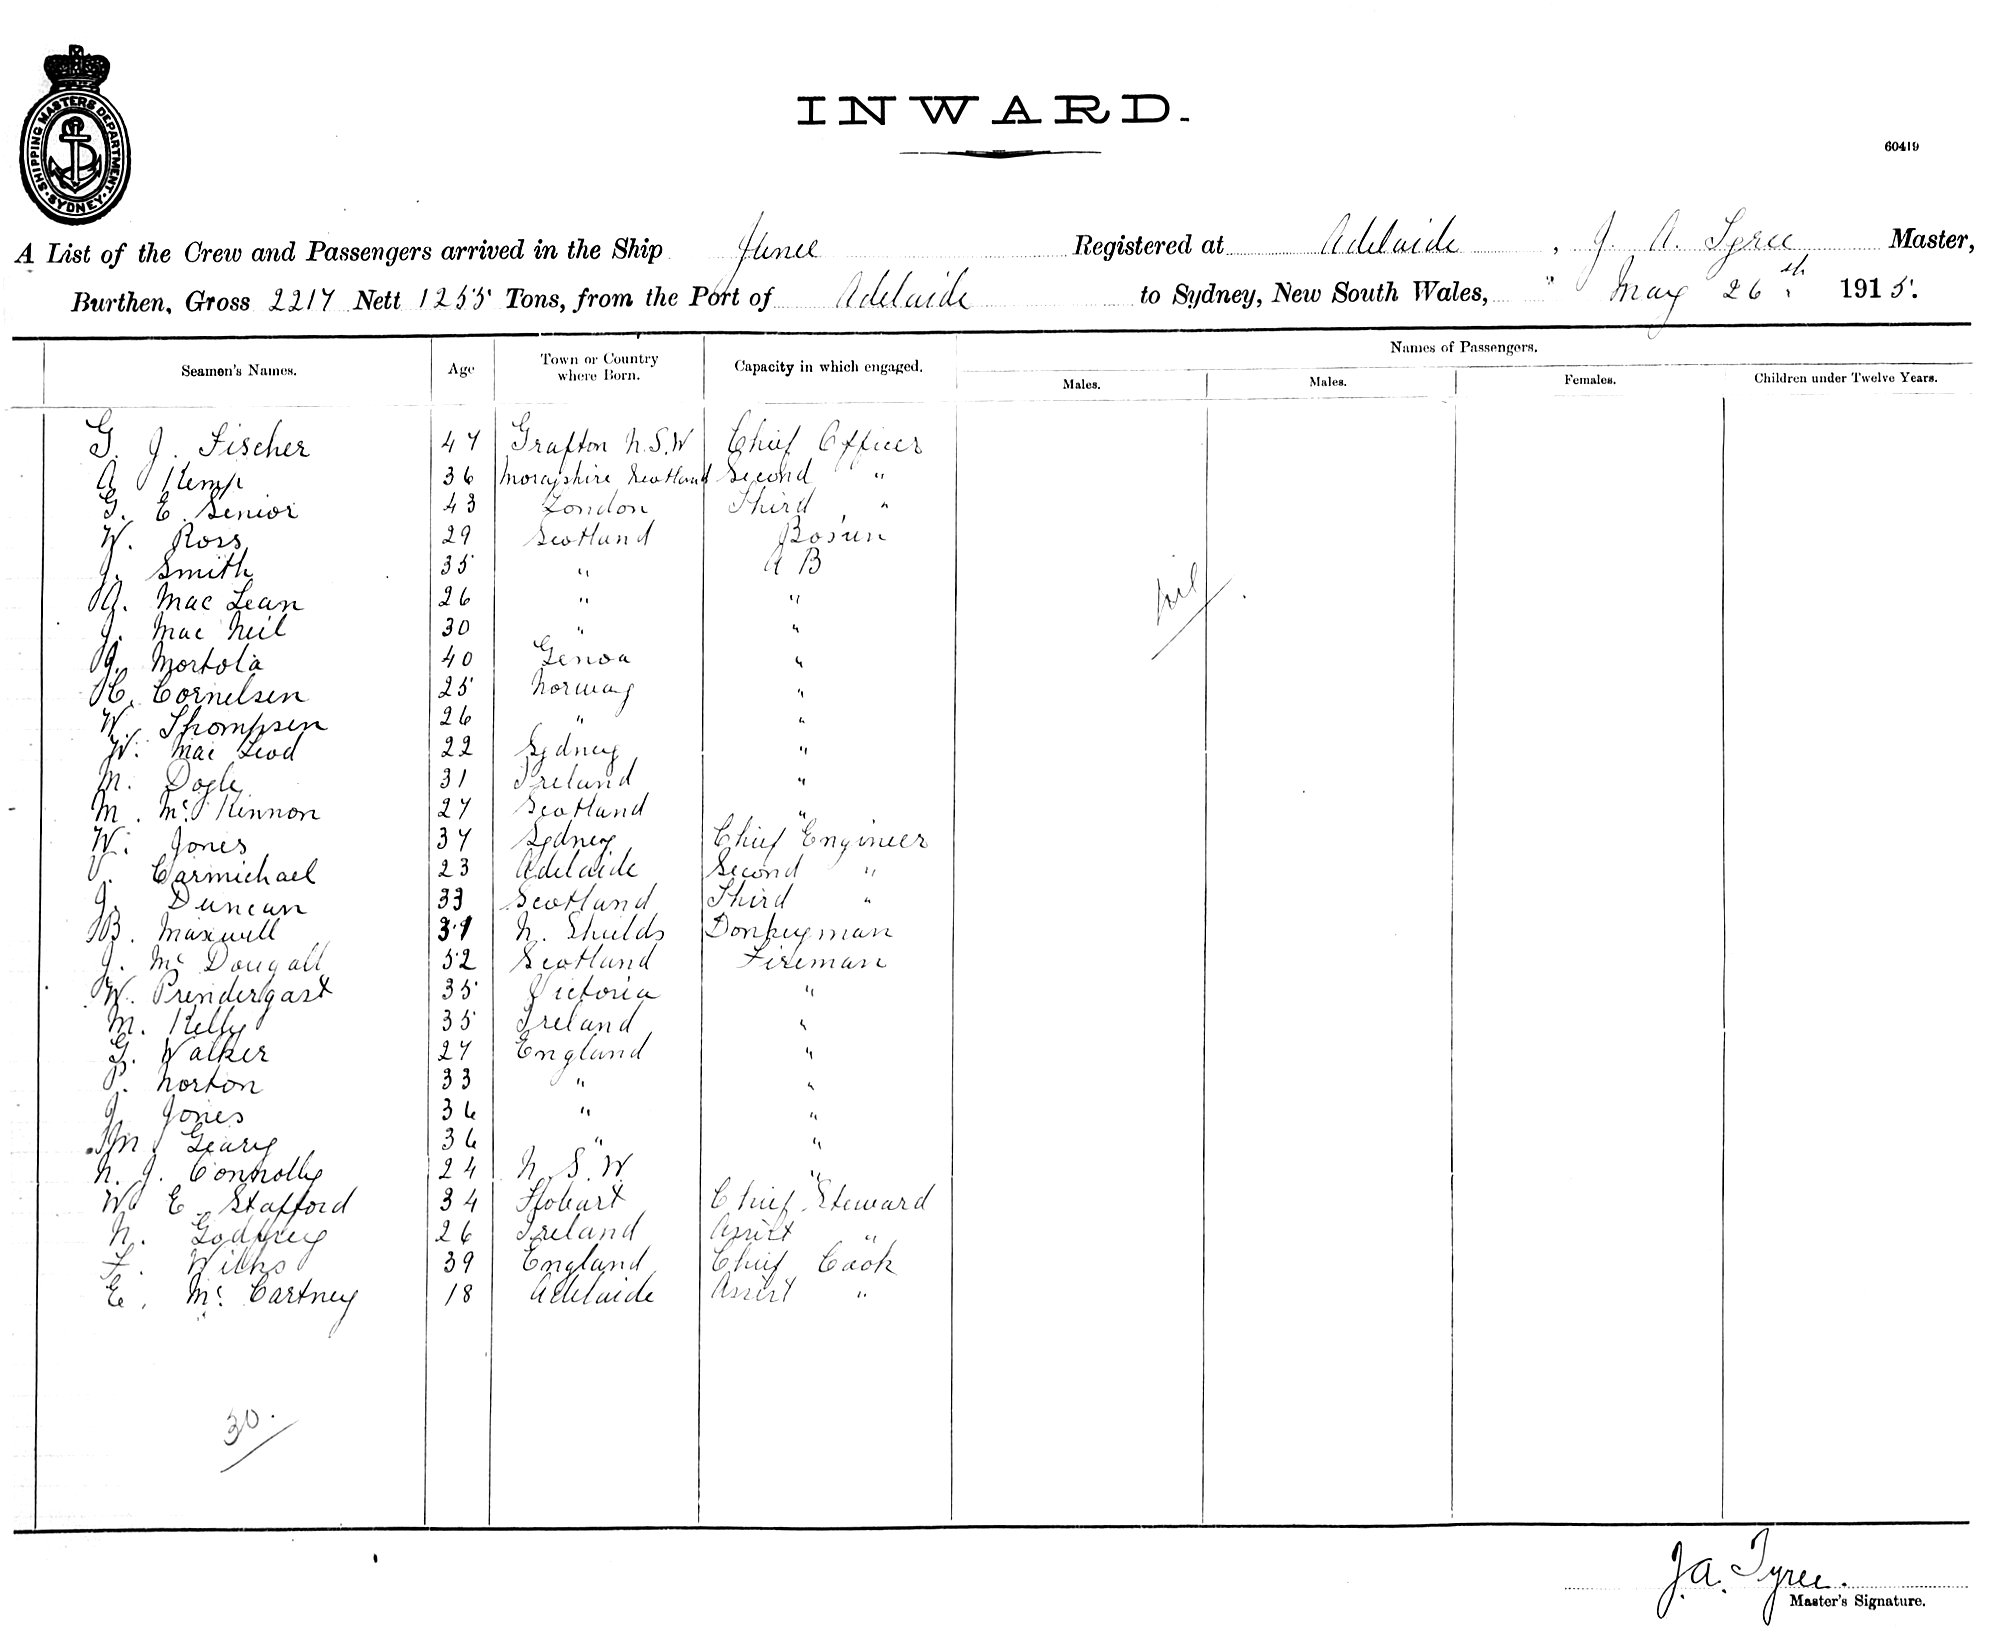 INWARD.
60419
SHIPPING MASTERS DEPARTMENT · SYDNEY ·
A List of the Crew and Passengers arrived in the Ship Junee Registered at Adelaide, J. A. Tyree Master,
Burthen, Gross 2217 Nett 1255 Tons, from the Port of Adelaide to Sydney, New South Wales, " May 26th 1915.
Names of Passengers.
Seamen's Names. Age Town or Country where Born. Capacity in which engaged. Males. Males. Females. Children under Twelve Years.
G. J. Fischer 47 Grafton N.S.W Chief Officer
A Kemp 36 Morayshire Scotland Second "
G. E. Senior 43 London Third "
W. Ross 29 Scotland Bosun
J. Smith 35 " A B
A. Mac Lean 26 " "
J. Mac Neil 30 " "
nil
A. Mortola 40 Genoa "
C. Cornelsen 25 Norway "
W. Thompsen 26 " "
W. Mac Leod 22 Sydney "
M. Dogle 31 Ireland "
M. Mc Kinnon 27 Scotland "
W. Jones 37 Sydney Chief Engineer
Carmichael 23 Adelaide Second "
J. Duncan 33 Scotland Third "
B. Maxwell 39 N. Shields Donkeyman
J. Mc Dougall 52 Scotland Fireman
W. Prendergast 35 Victoria "
M. Kelly 35 Ireland "
G. Walker 27 England "
P. Norton 33 " "
J. Jones 36 " "
M Geary 36 " "
N. J. Connolly 24 N. S. W "
W E. Stafford 34 Hobart Chief Steward
N. Godfrey 26 Ireland Assist "
F. Wilks 39 England Chief Cook
E. Mc. Cartney 18 Adelaide Assist "
30.
J. A. Tyree.
Master's Signature.